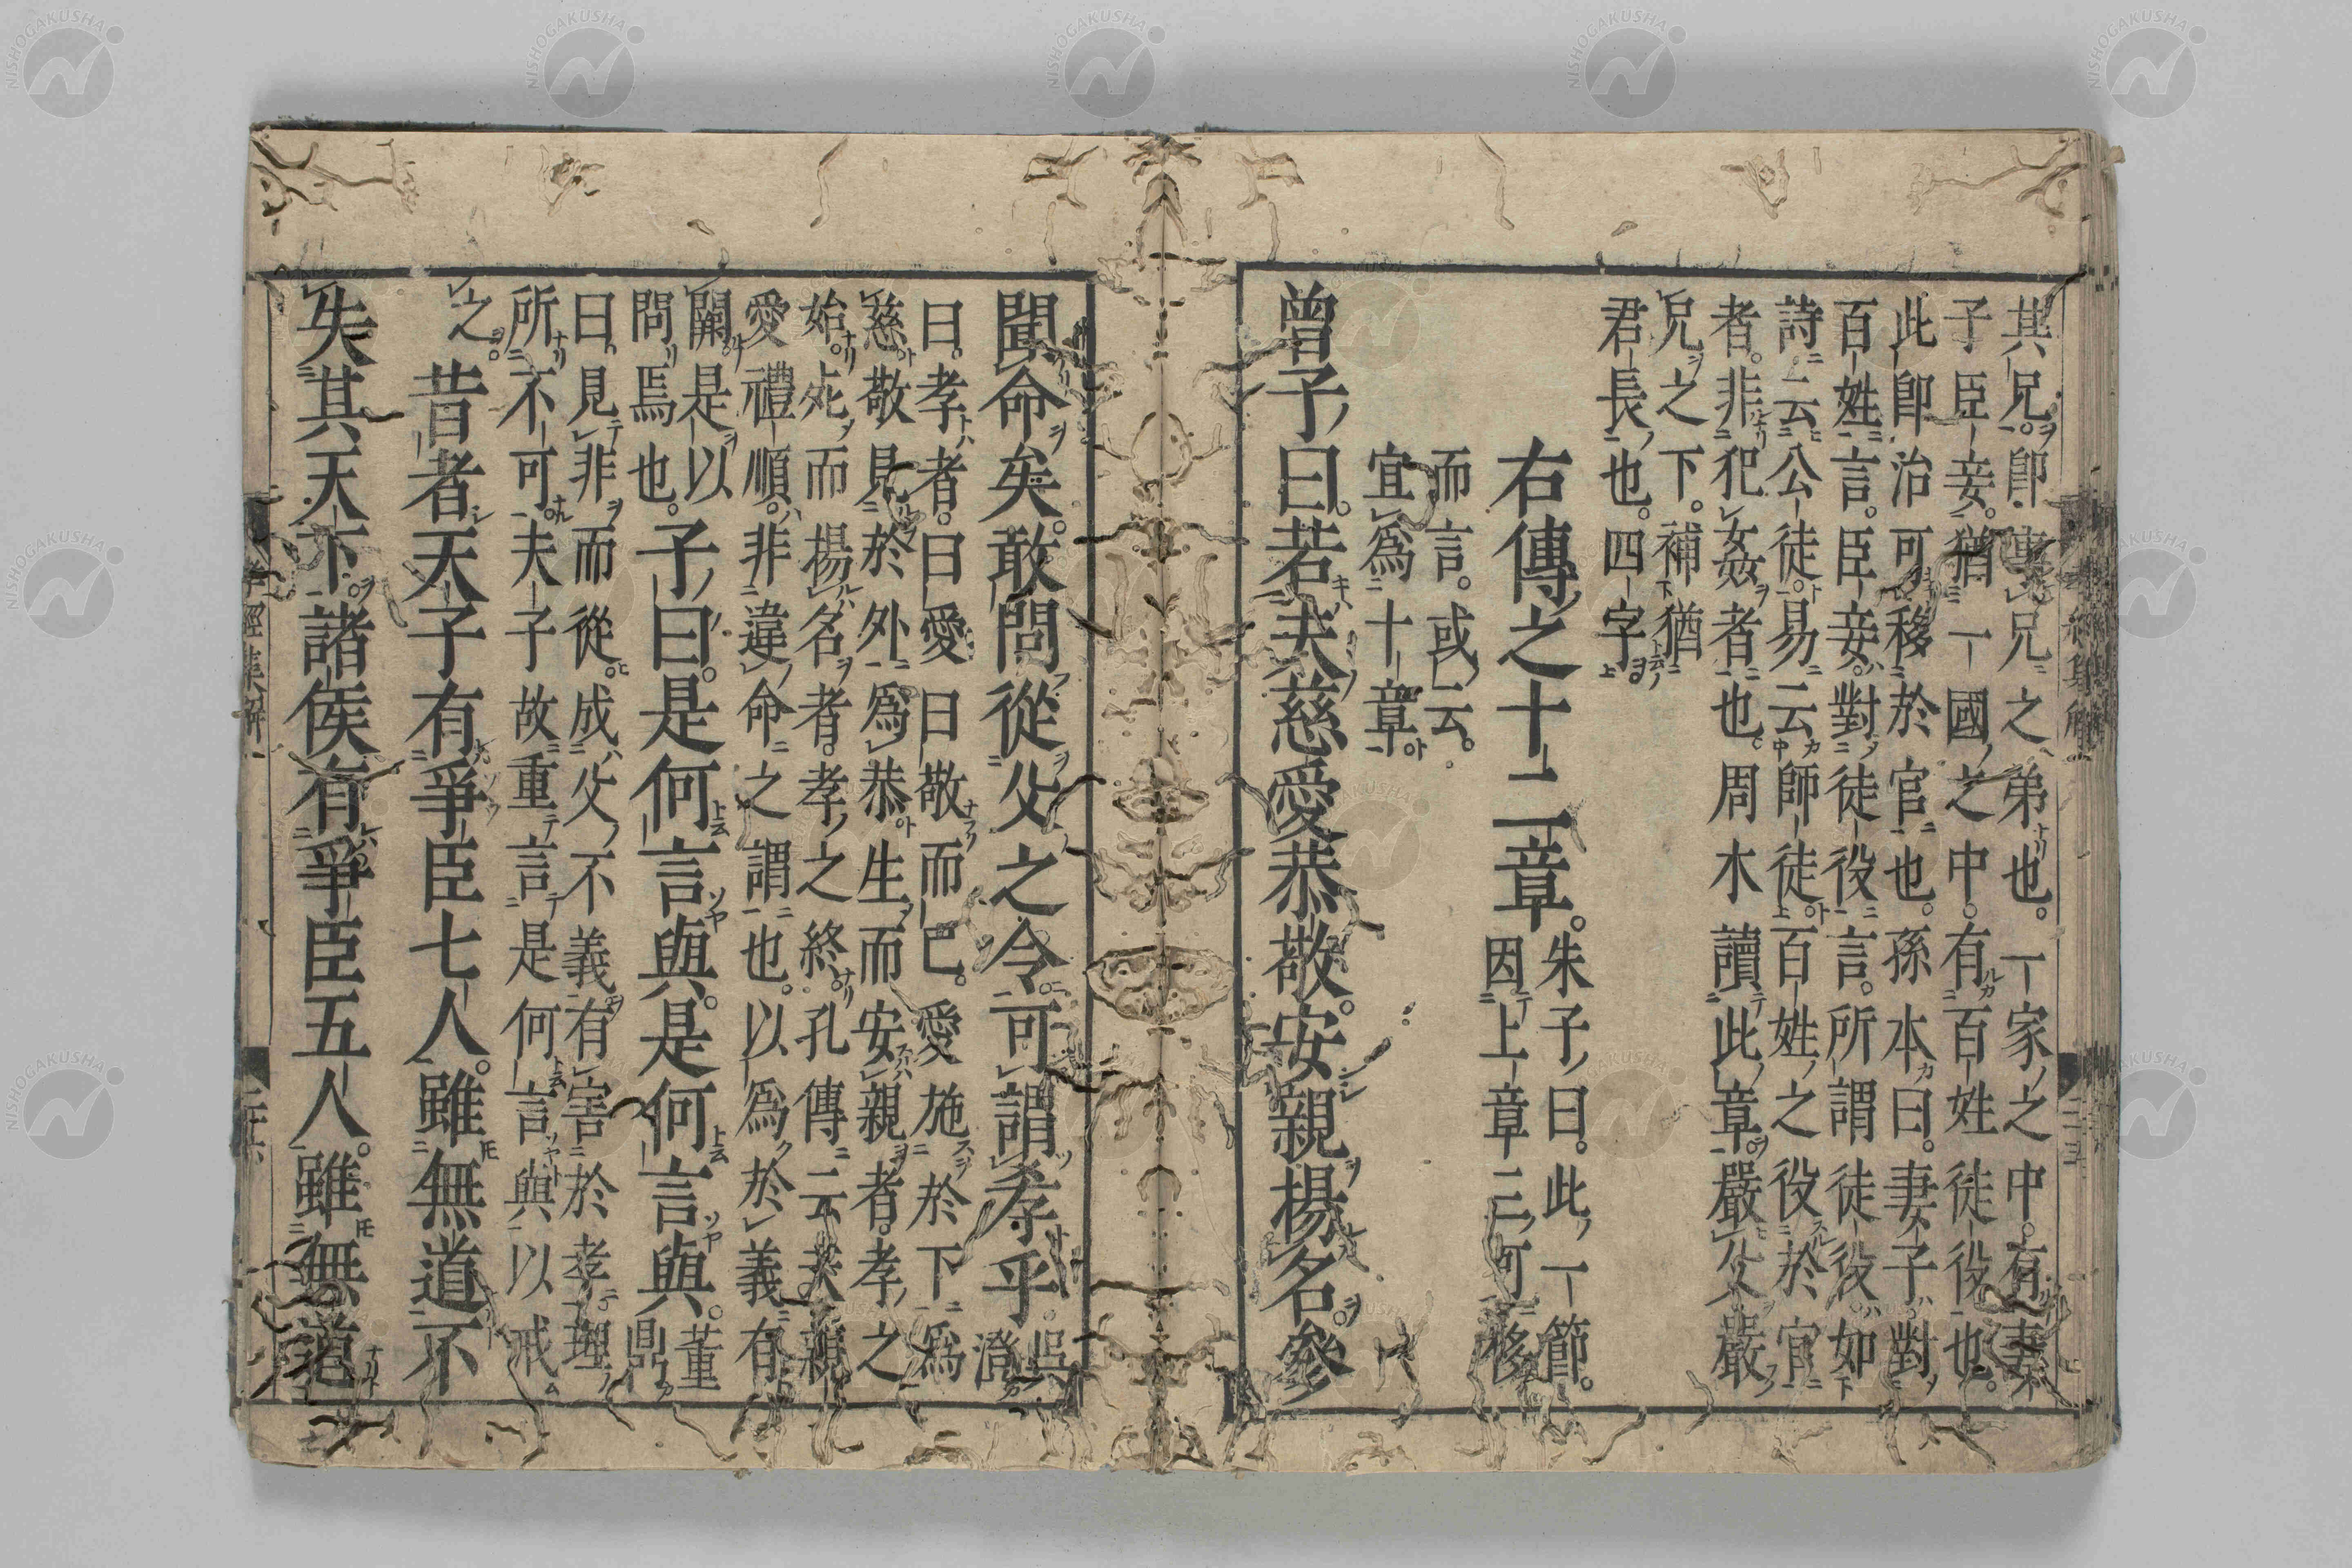 其兄即事兄之弟也一家之中有妻
子臣妾猶一國之中有百姓徒役也
此卽治可移於官也孫本曰妻子對
百姓言臣妾對徒役言所謂徒役如
詩云公徒易云師徒百姓之役於官
者非犯姦者也周木讀此章嚴父嚴
兄之下補猶
君長也四字
右傳之十二章
朱子曰此一節
因上章三可移
而言或云
宜爲十章
曾子曰若夫慈愛恭敬安親揚名參
聞命矣敢問從父之令可謂孝乎
吳
澄
曰孝者曰愛曰敬而已愛施於下爲
慈敬見於外爲恭生而安親者孝之
始死而揚名者孝之終孔傳云夫親
愛禮順非違命之謂也以爲於義有
闕是以
問焉也
子曰是何言與是何言與
董
鼎
曰見非而從成父不義有害於孝理
所不可夫子故重言是何言與以戒
之
昔者天子有爭臣七人雖無道不
失其天下諸侯有爭臣五人雖無道
孝經集解
二十六
NISHOGAKUSHA